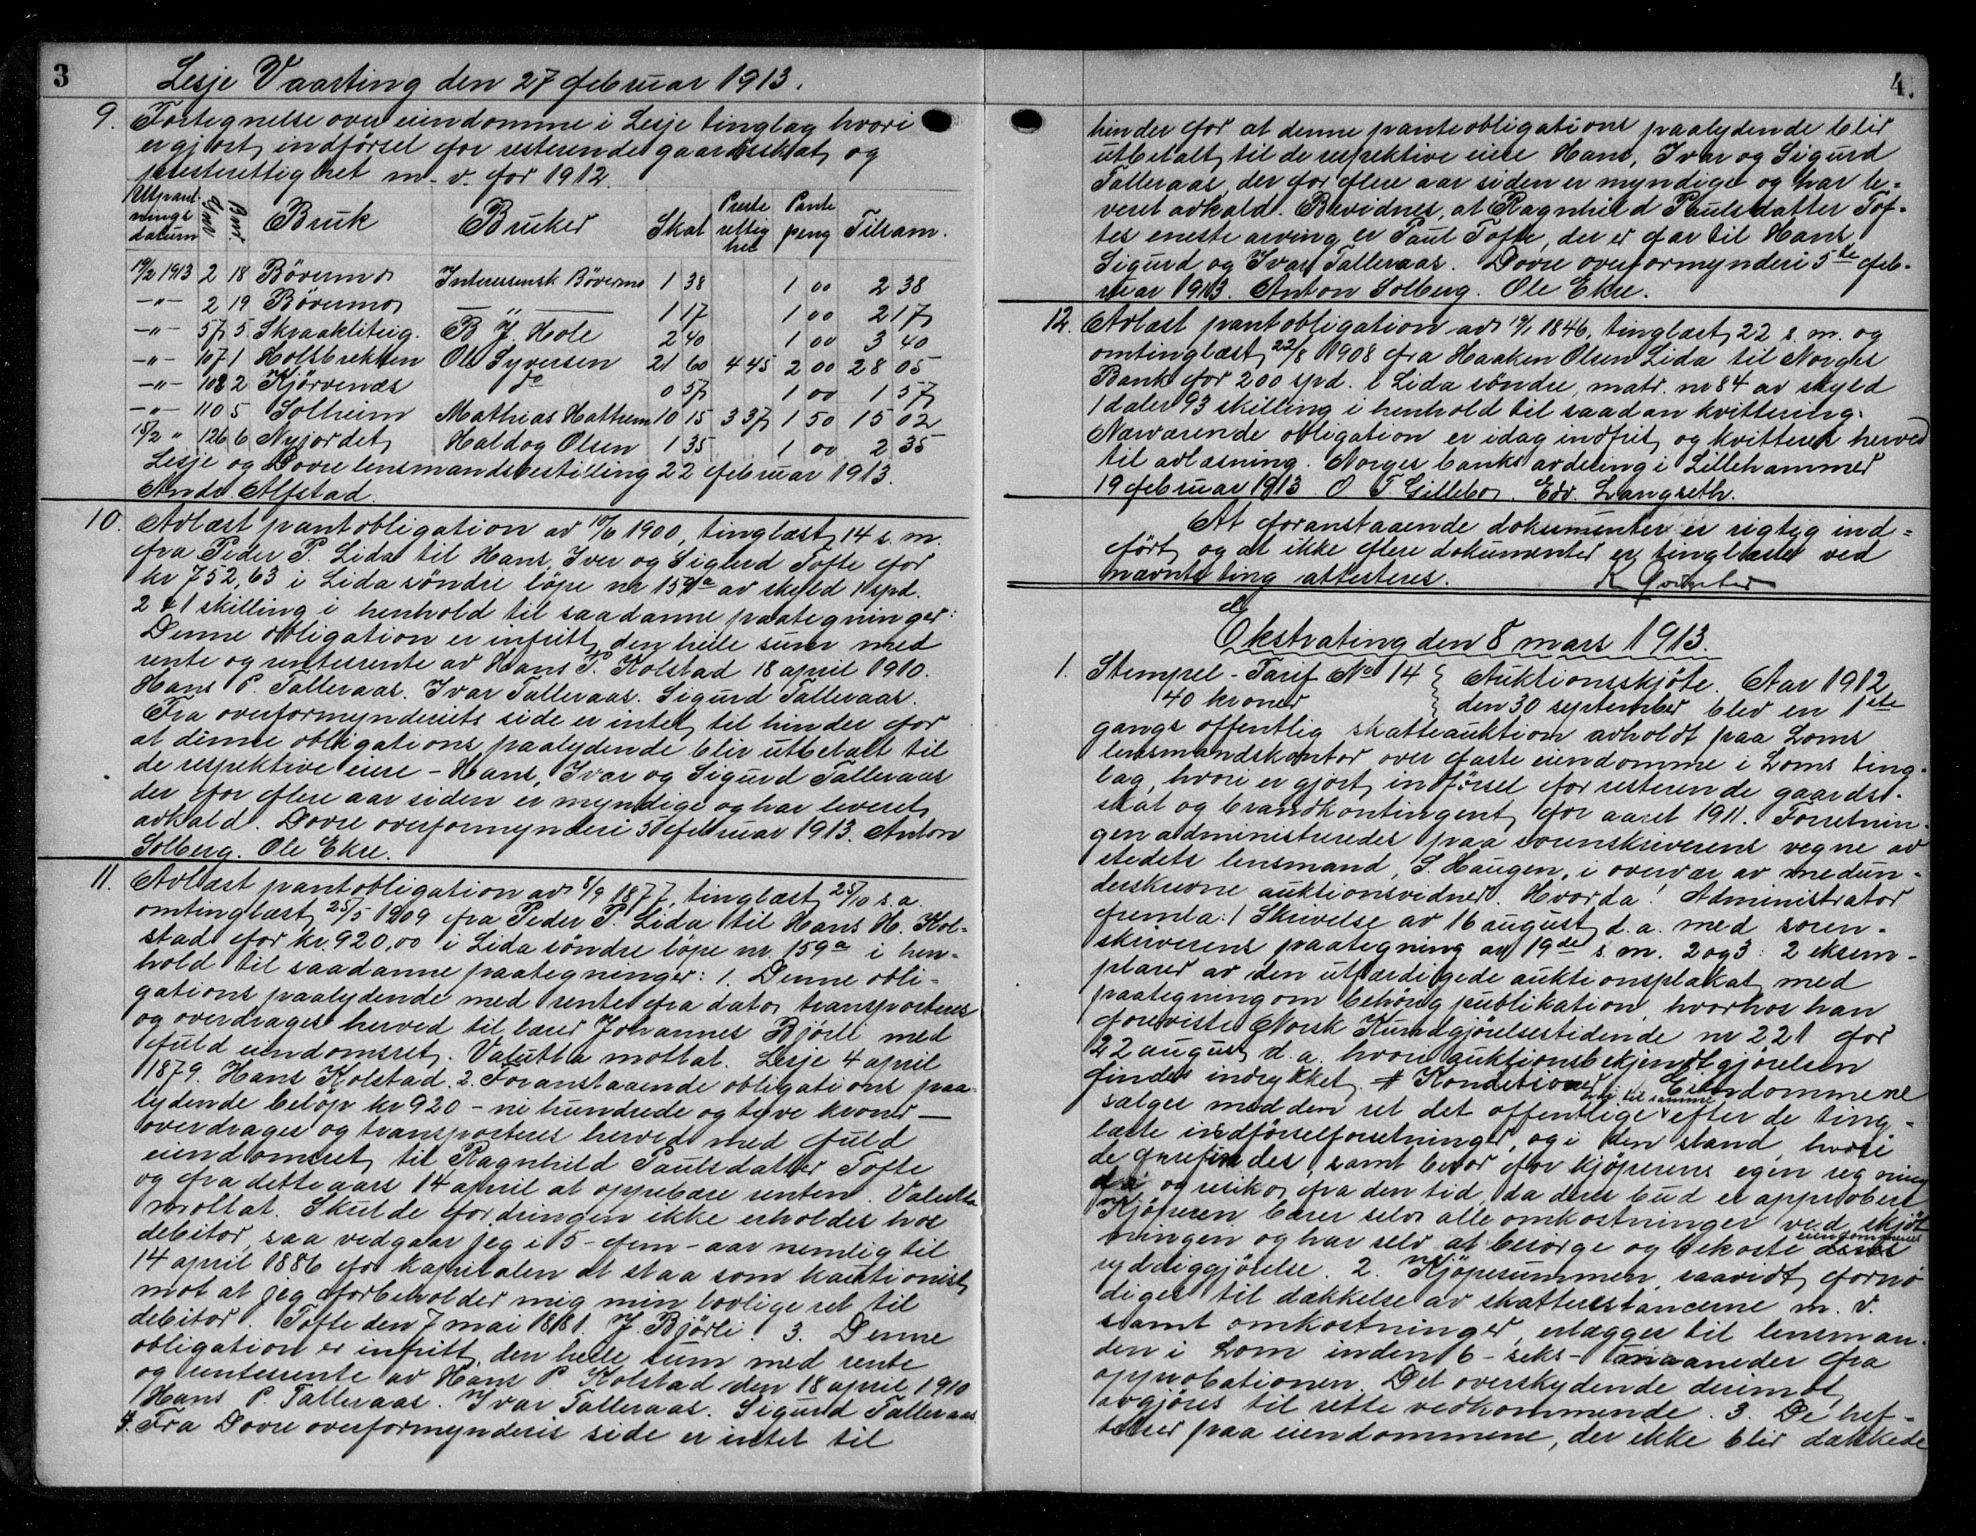 3
Lesje Vaarting den 27 februar 1913.
9. Fortegnelse over eiendomme i Lesje tinglag hvori
er gjort indförsel for resterende gaardsskat og
presterettighet m. v. for 1912.
Utpant-
nings
datum | Gnr | Bnr. | Bruk | Bruker | Skat | Preste
rettig
het | Pante
peng | Tilsam.
19/2 1913 2 18 Bövermo Interessensk Bövermo 1 38 1 00 2 38
—"— 2 19 Bövermo —"— 1 17 1 00 2 17
—"— 57 5 Skraakliteig. B J. Hole 2 40 1 00 3 40
—"— 107 1 Holsbrekken Ole Syversen 21 60 4 45 2 00 28 05
—"— 108 2 Kjörvenæs do 0 57 1 00 1 57
—"— 110 5 Solheim Mathias Hattrem 10 15 3 37 1 50 15 02
15/2 " 126 6 Nyjordet Haldog Olsen 1 35 1 00 2 35
Lesje og Dovre lensmandsbestilling 22 februar 1913.
Anders Alfstad.
10. Avlæst pantobligation av 10/6 1900, tinglæst 14 s. m.
fra Peder P. Lida til Hans, Iver og Sigurd Tofte for
kr 752,63 i Lida söndre löpe nr 159a av skyld 1 spd.
2 & 1 skilling i henhold til saadanne paategninger:
Denne obligation er infritt den heile sum med
rente og rentesrente av Hans P. Kolstad 18 april 1910.
Hans P. Talleraas. Ivar Talleraas. Sigurd Talleraas.
Fra overformynderiets side er intet til hinder for
at denne obligations paalydende blir utbetalt til
de respektive eiere – Hans, Ivar og Sigurd Talleraas
der for flere aar siden er myndige og har leveret
avkald. Dovre overformynderi 5 februar 1913. Anton
Solberg. Ole Ekre.
11. Avlæst pantobligation av 8/9 1877, tinglæst 25/10 s. a.
omtinglæst 25/5 1909 fra Peder P. Lida til Hans H. Kol-
stad for kr. 920,00 i Lida söndre löpe nr 159a i hen-
hold til saadanne paategninger: 1. Denne obli-
gations paalydende med rente fra dato transporteres
og overdrages herved til lærer Johannes Bjorli med
fuld eiendomsret. Valutta mottat. Lesje 4 april
1879. Hans Kolstad. 2. Foranstaaende obligations paa-
lydende belöp kr 920 – ni hundrede og tyve kroner —
overdrages og transporteres herved med fuld
eiendomsret til Ragnhild Paulsdatter Tofte
og fra dette aars 14 april at oppebære renten. Valutta
mottat. Skulde fordringen ikke erholdes hos
debitor, saa vedgaar jeg i 5 – fem – aar nemlig til
14 april 1886 for kapitalen at staa som kautionist
mot at jeg forbeholder mig min lovlige ret til
debitor. Tofte den 7 mai 1881. J. Björli. 3. Denne
obligation er infritt den hele sum med rente
og rentesrente av Hans P. Kolstad den 18 april 1910
Hans P. Talleraas. Ivar Talleraas. Sigurd Talleraas.
4. Fra Dovre overformynderis side er intet til
4.
hinder for at denne panteobligations paalydende blir
utbetalt til de respektive eiere Hans, Ivar og Sigurd
Talleraas der for flere aar siden er myndige og har le-
veret avkald. Bevidnes, at Ragnhild Paulsdatter Tof-
tes eneste arving er Paul Tofte, der er far til Hans
Sigurd og Ivar Talleraas. Dovre overformynderi 5te feb-
ruar 1913. Anton Solberg. Ole Ekre.
12. Avlæst pantobligation av 19/1 1846, tinglæst 22 s. m. og
omtinglæst 22/8 1908 fra Haaken Olsen Lida til Norges
Bank for 200 spd. i Lida söndre, matr. nr 84 av skyld
1 daler 93 skilling i henhold til saadan kvittering:
Nærværende obligation er idag indfriet og kvitteres herved
til avlæsning. Norges banks avdeling i Lillehammer
19 februar 1913. O T. Gillebo. Edv. Langseth.
At foranstaaende dokumenter er rigtig ind-
fört og at ikke flere dokumenter er tinglæste ved
nævnte ting attesteres.
Ekstrating den 8 mars 1913.
1. Stempel-Tarif No 14 Auktionsskjöte. Aar 1912
40 kroner den 30 september blev en 1ste
gangs offentlig skatteauktion avholdt paa Loms
lensmandskontor over faste eiendomme i Loms ting-
lag, hvori er gjort indförsel for resterende gaards-
skat og brandkontingent for aaret 1911. Forretnin-
gen administreredes paa sorenskriverens vegne av
stedets lensmand, S. Haugen, i overvær av medun-
derskrevne auktionsvidner. Hvorda! Administrator
fremla: 1 Skrivelse av 16 august d. a. med soren-
skriverens paategning av 19de s. m. 2 og 3: 2 eksem-
plarer av den utfærdigede auktionsplakat med
paategning om behörig publikation, hvorhos han
foreviste Norsk Kundgjörelsestidende nr 221 for
22 august d. a. hvori auktionsbekjendtgjörelsen
findes indrykket. # Konditioner Eiendommene
sælges med den ret det offentlige har til samme efter de ting-
læste indförselforretninger, og i den stand, hvori
de forefindes, samt bevor for kjöperens egen regning
og resiko fra den tid, da deres bud er approbert
Kjöperen bærer selv alle omkostninger ved skjöt-
ningen og har selv at besörge og bekoste eiendommenes
ryddiggjörelse. 2. Kjöpesummen, saavidt fornö-
diges til dækkelse av skatterestancerne m. v.
samt omkostninger, erlægges til lensman-
den i Lom inden 6 – seks – maaneder fra
approbationen. Det overskydende derimot
avgjöres til rette vedkommende. 3. De hef-
telser paa eiendommene, der ikke blir dækkede